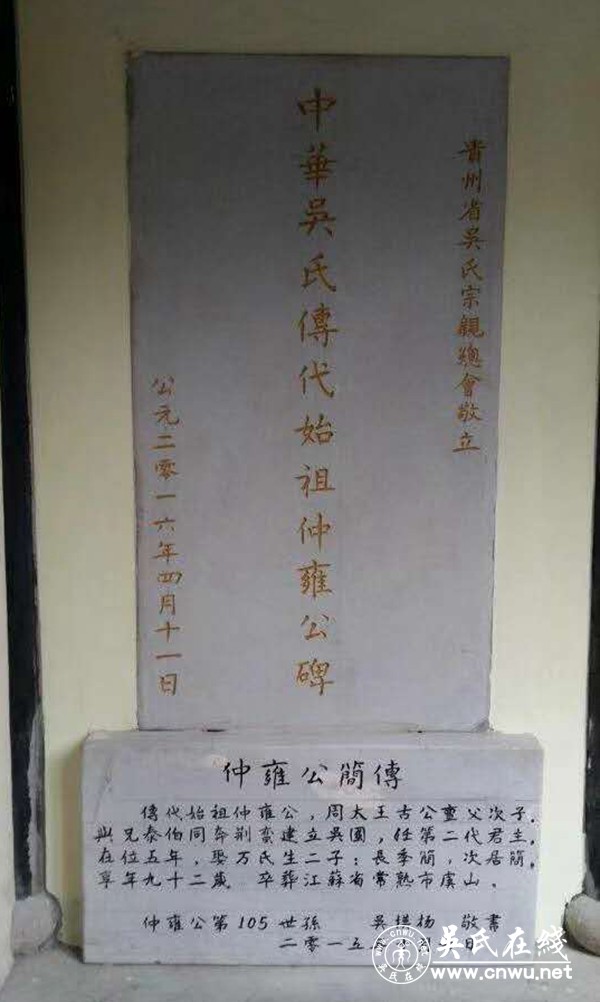 貴州省吳氏宗親總會敬立
中華吳氏傳代始祖仲雍公碑
公元二零一六年四月十一日
仲雍公簡傳
傳代始祖仲雍公，周太王古公亶父次子。
與兄泰伯同奔荆蠻建立吳國，任第二代君主。
在位五年，娶万氏生二子：長季簡，次居簡。
享年九十二歲 卒葬江蘇省常熟市虞山。
仲雍公第105世孫 吳 扬 敬書
二零一五 日
吴氏在线
www.cnwu.net